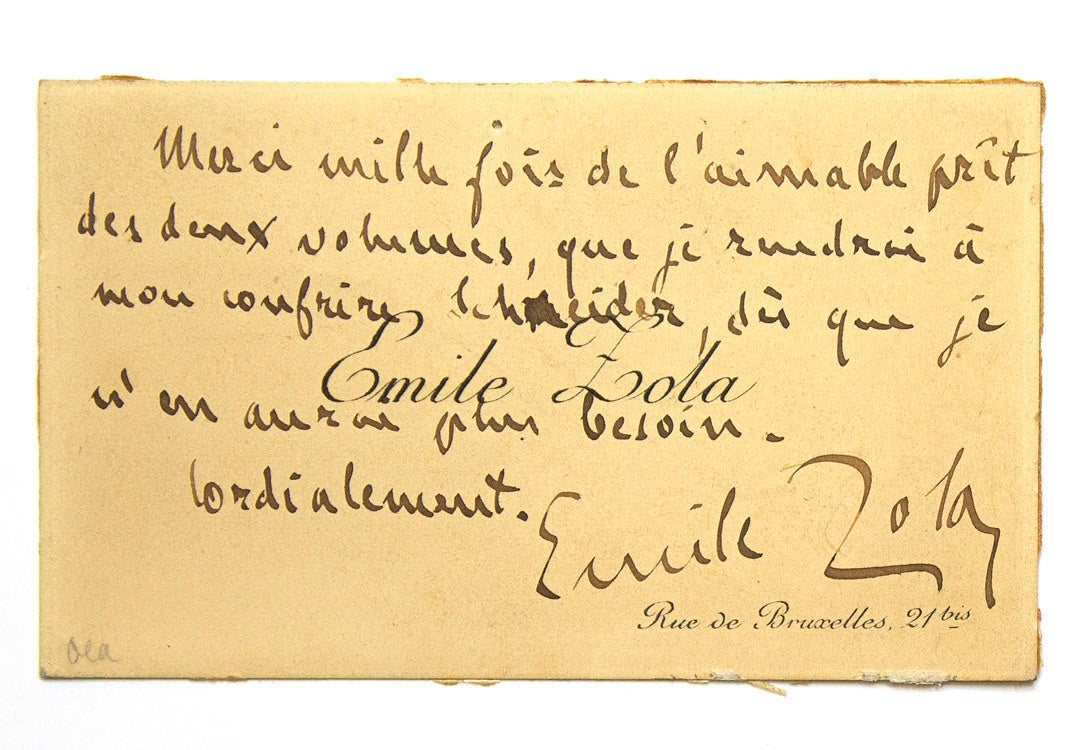 Merci mille fois de l'aimable prêt
des deux volumes, que je rendrai à
mon confrère Schneider, dès que je
Emile Zola
n'en aurai plus besoin.
Cordialement.
Emile Zola
Rue de Bruxelles, 21 bis